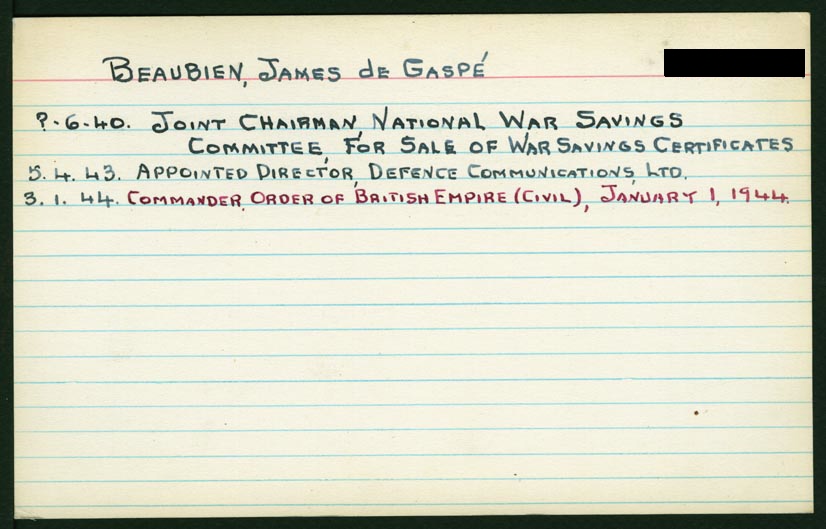 BEAUBIEN, JAMES de GASPÉ
?.6.40. JOINT CHAIRMAN, NATIONAL WAR SAVINGS
COMMITTEE, FOR SALE OF WAR SAVINGS CERTIFICATES
5.4.43. APPOINTED DIRECTOR, DEFENCE COMMUNICATIONS, LTD.
3.1.44. COMMANDER, ORDER OF BRITISH EMPIRE (CIVIL), JANUARY 1, 1944.